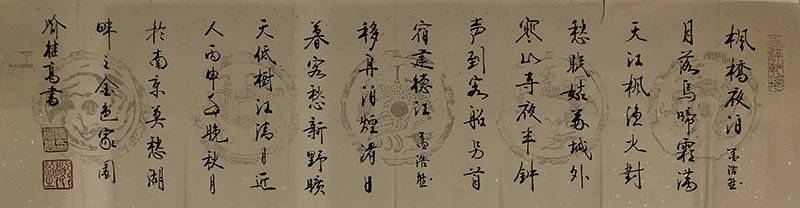 楓橋夜泊 孟浩然
月落烏啼霜滿
天江楓漁火對
愁眠姑蘇城外
寒山寺夜半鐘
声到客船另首
宿建德江 孟浩然
移舟泊煙渚日
暮客愁新野曠
天低樹江清月近
人丙申年晚秋月
於南京莫愁湖
畔之金色家園
桂高書